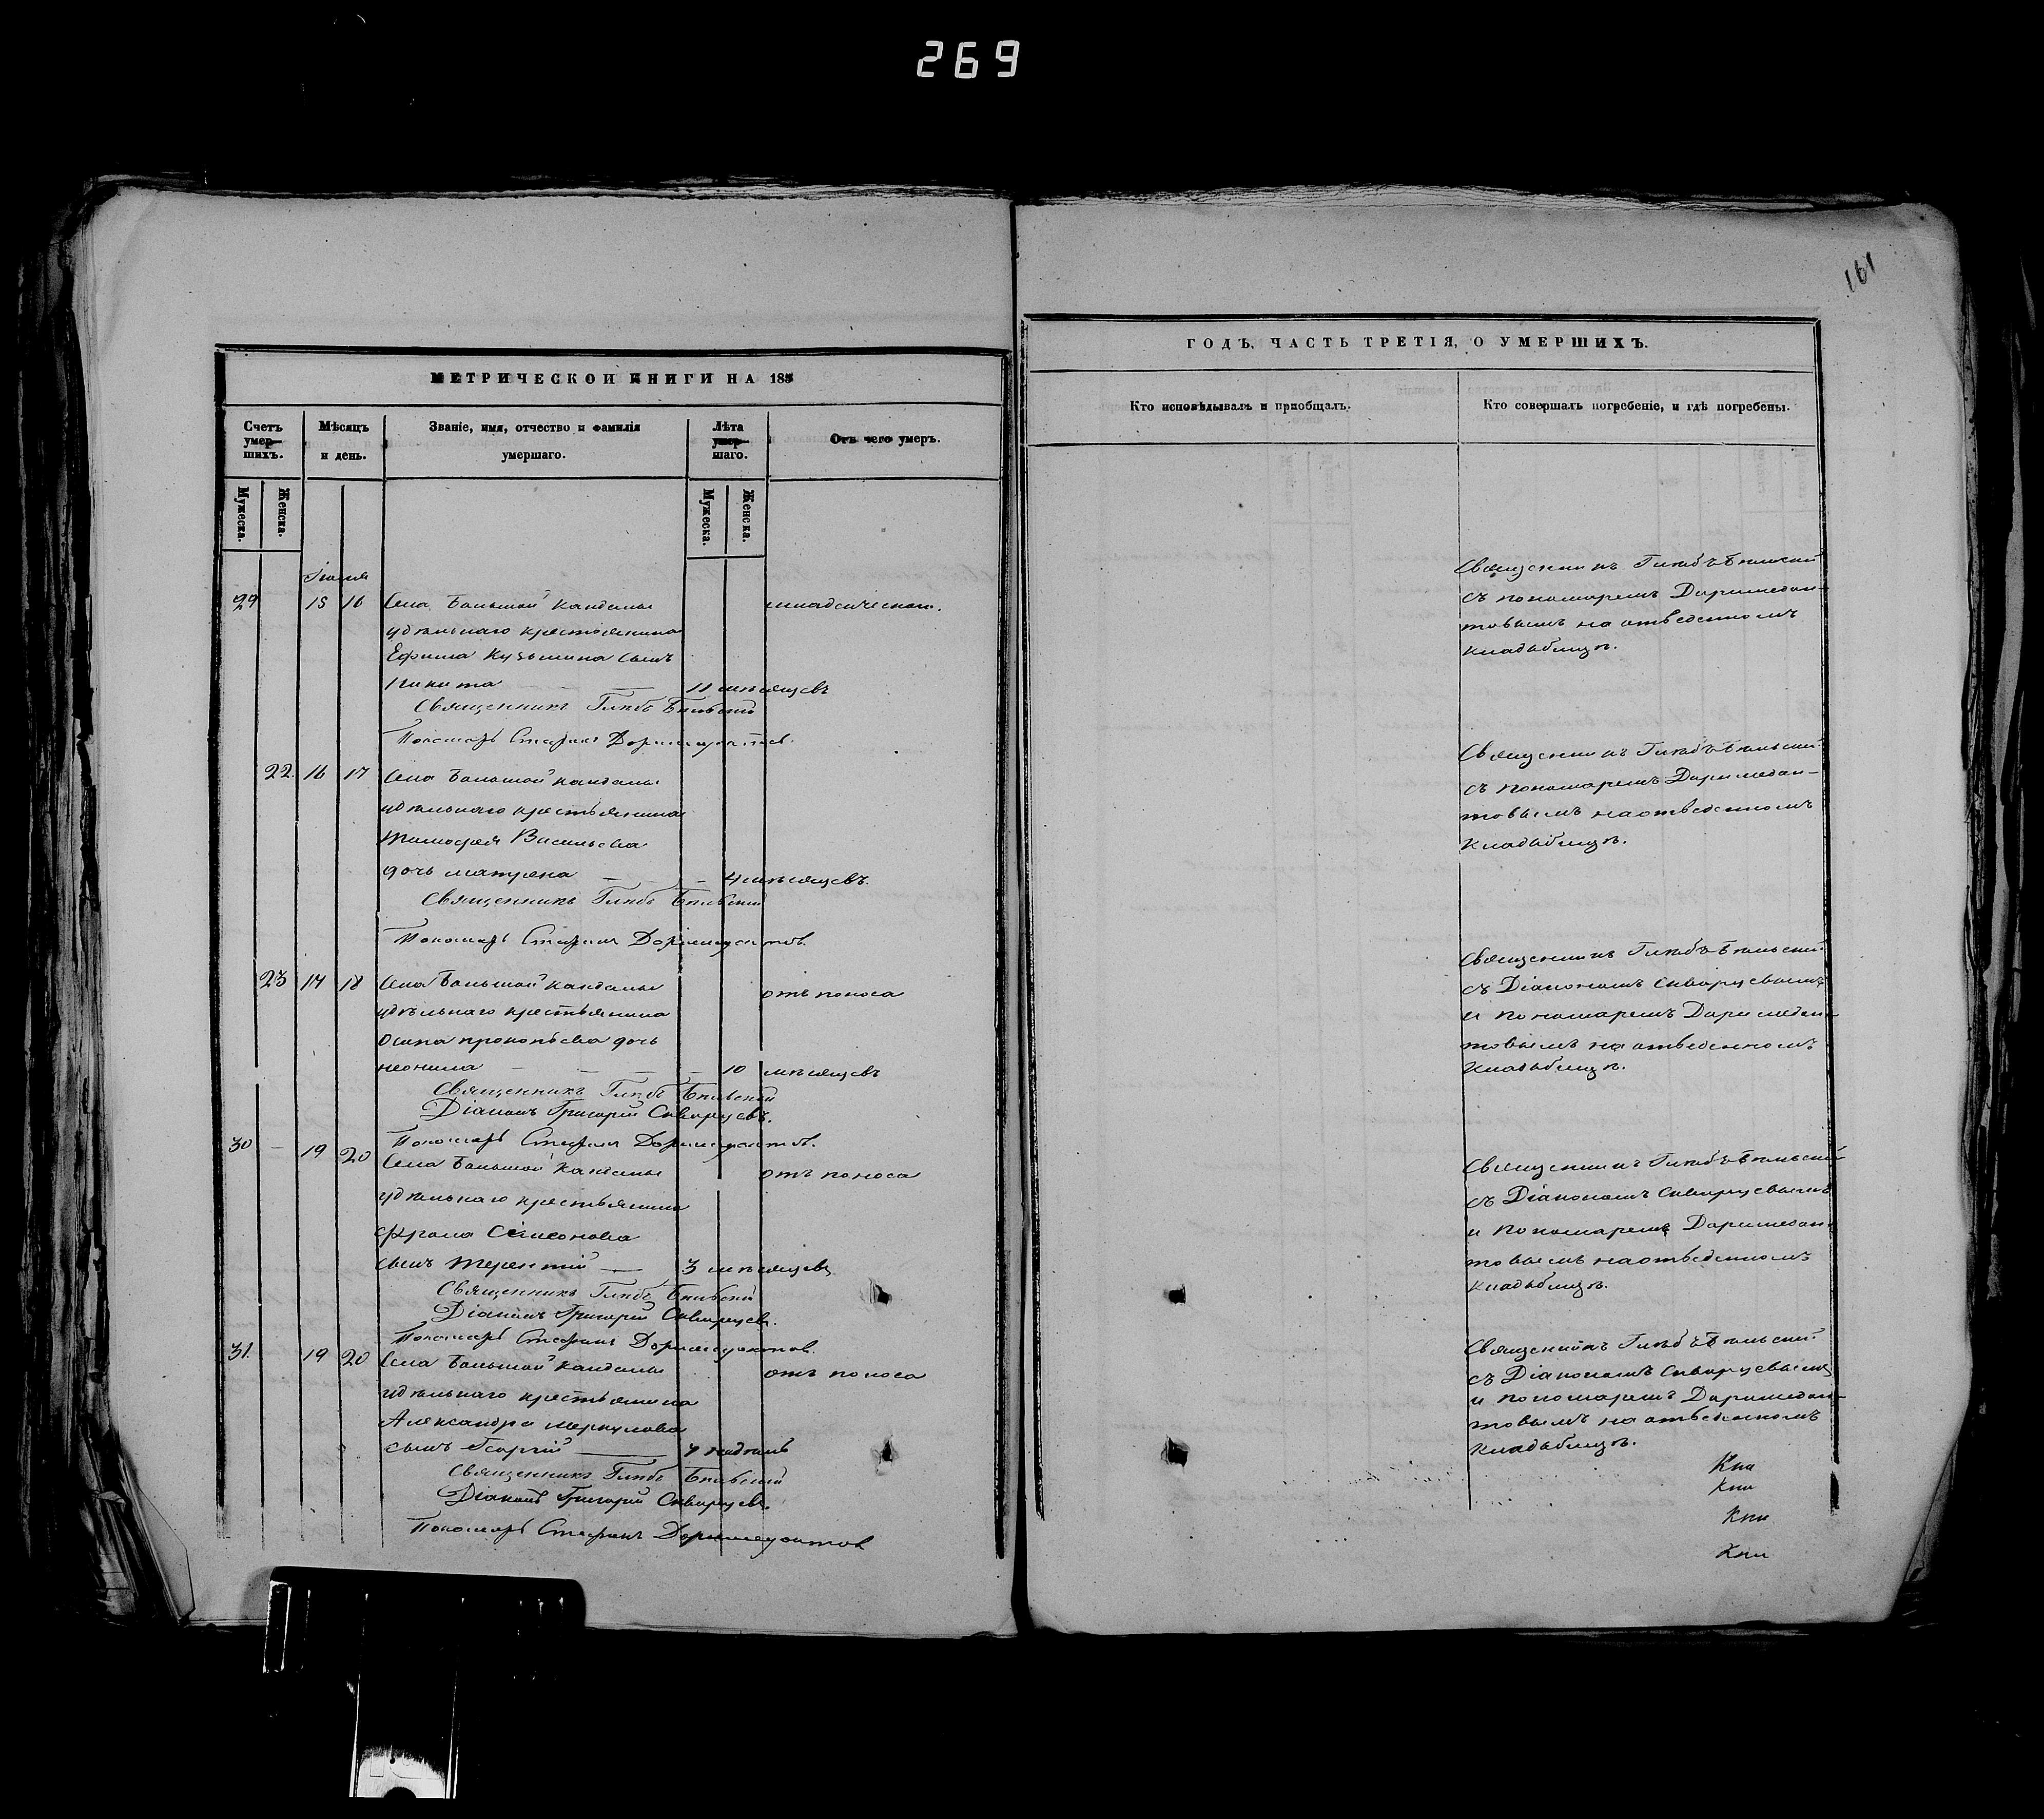 269
161
МЕТРИЧЕСКОЙ КНИГИ НА 185
ГОДЪ, ЧАСТЬ ТРЕТІЯ, О УМЕРШИХЪ.
Счетъ умер-шихъ.
Мѣсяцъ и день.
Званіе, имя, отчество и фамилія умершаго.
Лѣта умер-шаго.
Отъ чего умеръ.
Кто исповѣдывалъ и пріобщалъ.
Кто совершалъ погребеніе, и гдѣ погребены.
Мужеска.
Женска.
Мужеска.
Женска.
29 15 16 Села Большой Кандалы младенческой.
удѣльнаго крестьянина
Ефима Кузьмина сынъ
Никита — 11 мѣсяцевъ
Священникъ Глѣбъ Бѣльскій
Пономарь Стефанъ Доримедонтовъ.
Священникъ Глѣбъ Бѣльскій
съ пономаремъ Доримедон-
товымъ на отведенномъ
кладбищѣ.
22. 16 17 Села Большой Кандалы
удѣльнаго крестьянина
Тимофея Васильева
дочь Матрена — — 4 мѣсяцевъ.
Священникъ Глѣбъ Бѣльскій
Пономарь Стефанъ Доримедонтовъ.
Священникъ Глѣбъ Бѣльскій
съ пономаремъ Доримедон-
товымъ на отведенномъ
кладбищѣ.
23 17 18 Села Большой Кандалы отъ поноса
удѣльнаго крестьянина
Осипа Прокопьева дочь
Неонила — — — — 10 мѣсяцевъ
Священникъ Глѣбъ Бѣльскій
Діаконъ Григорій Скворцевъ.
Пономарь Стефанъ Доримедонтовъ.
Священникъ Глѣбъ Бѣльскій
съ Діакономъ Скворцевымъ
и пономаремъ Доримедон-
товымъ на отведенномъ
кладбищѣ.
30 — 19 20 Села Большой Кандалы отъ поноса
удѣльнаго крестьянина
Фрола Семионова
сынъ Терентій — 3 мѣсяцевъ
Священникъ Глѣбъ Бѣльскій
Діаконъ Григорій Скворцевъ.
Пономарь Стефанъ Доримедонтовъ.
Священникъ Глѣбъ Бѣльскій
съ Діакономъ Скворцевымъ
и пономаремъ Доримедон-
товымъ на отведенномъ
кладбищѣ.
31. 19 20 Села Большой Кандалы отъ поноса
удѣльнаго крестьянина
Александра Меркулова
сынъ Георгій — недѣль
Священникъ Глѣбъ Бѣльскій
Діаконъ Григорій Скворцевъ.
Пономарь Стефанъ Доримедонтовъ
Священникъ Глѣбъ Бѣльскій
съ Діакономъ Скворцевымъ
и пономаремъ Доримедон-
товымъ на отведенномъ
кладбищѣ.